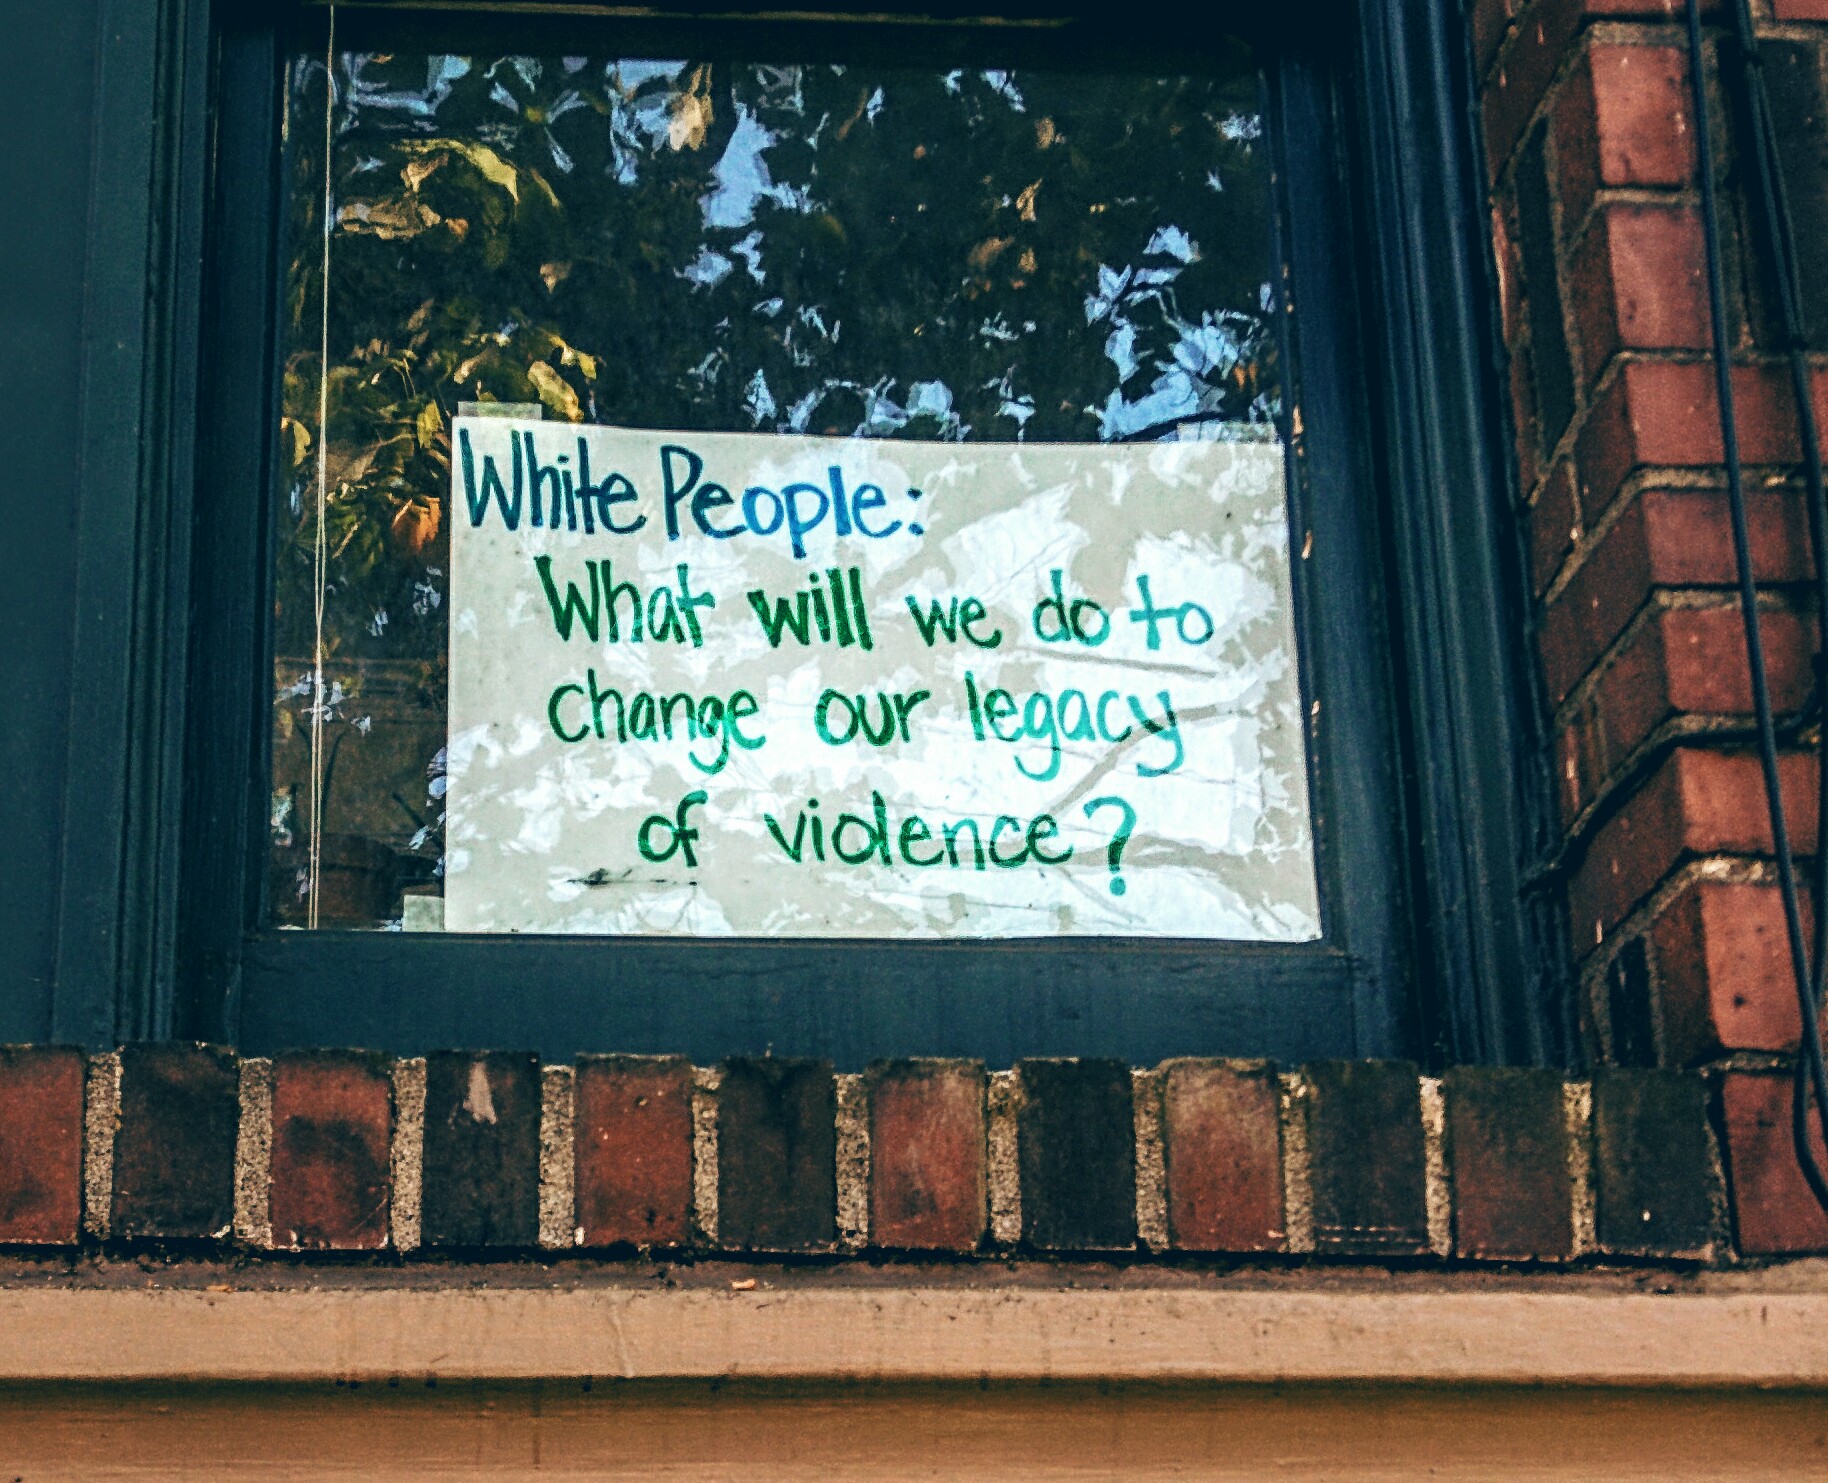 White People:
What will we do to
change our legacy
of violence?